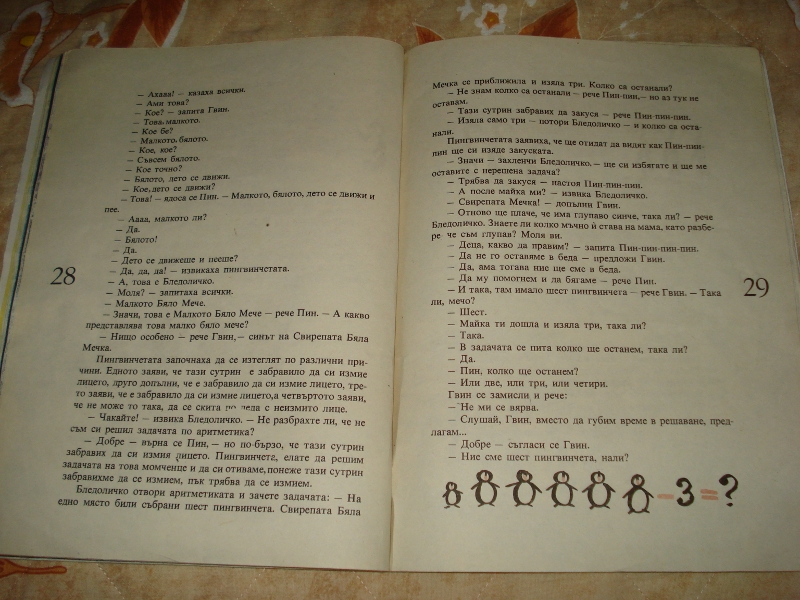 — Ахава! — казаха всички.
— Ами това?
— Кое? — запита Гвин.
— Това, малкото.
— Кое бе?
— Малкото, бялото.
— Кое, кое?
— Съвсем бялото.
— Кое точно?
— Бялото, дето се движи.
— Кое, дето се движи?
— Това! — ядоса се Пин. — Малкото, бялото, дето се движи и
пее.
— Аааа, малкото ли?
— Да.
— Бялото!
— Да.
— Дето се движеше и пееше?
— Да, да, да! — извикаха пингвинчетата.
— А, това е Бледоличко.
— Моля? — запитаха всички.
— Малкото Бяло Мече.
— Значи, това е Малкото Бяло Мече — рече Пин. — А какво
представлява това малко бяло мече?
— Нищо особено — рече Гвин, — синът на Свирепата Бяла
Мечка.
Пингвинчетата започнаха да се изтеглят по различни при-
чини. Едното заяви, че тази сутрин е забравило да си измие
лицето, друго допълни, че е забравило да си измие лицето, тре-
то заяви, че е забравило да си измие лицето, а четвъртото заяви,
че не може то така, да се скита по леда с неизмито лице.
— Чакайте! — извика Бледоличко. — Не разбрахте ли, че не
съм си решил задачата по аритметика?
— Добре — върна се Пин, — но по-бързо, че тази сутрин
забравих да си измия лицето. Пингвинчета, елате да решим
задачата на това момченце и да си отиваме, понеже тази сутрин
забравихме да се измием, пък трябва да се измием.
Бледоличко отвори аритметиката и зачете задачата: — На
едно място били събрани шест пингвинчета. Свирепата Бяла
28
Мечка се приближила и изяла три. Колко са останали?
— Не знам колко са останали — рече Пин-пин, — но аз тук не
оставам.
— Тази сутрин забравих да закуся — рече Пин-пин-пин.
— Изяла само три — потори Бледоличко — и колко са оста-
нали.
Пингвинчетата заявиха, че ще отидат да видят как Пин-пин-
пин ще си изяде закуската.
— Значи — захленчи Бледоличко, — ще си избягате и ще ме
оставите с нерешена задача?
— Трябва да закуся — настоя Пин-пин-пин.
— А после майка ми? — извика Бледоличко.
— Свирепата Мечка! — допълни Гвин.
— Отново ще плаче, че има глупаво синче, така ли? — рече
Бледоличко. Знаете ли колко мъчно ѝ става на мама, като разбе-
ре че съм глупав? Моля ви.
— Деца, какво да правим? — запита Пин-пин-пин-пин.
— Да не го оставяме в беда — предложи Гвин.
— Да, ама тогава ние ще сме в беда.
— Да му помогнем и да бягаме — рече Пин.
— И така, там имало шест пингвинчета — рече Гвин. — Така
ли, мечо?
— Шест.
— Майка ти дошла и изяла три, така ли?
— Така.
— В задачата се пита колко ще останем, така ли?
— Да.
— Пин, колко ще останем?
— Или две, или три, или четири.
Гвин се замисли и рече:
— Не ми се вярва.
— Слушай, Гвин, вместо да губим време в решаване, пред-
лагам...
— Добре — съгласи се Гвин.
— Ние сме шест пингвинчета, нали?
— 3 = ?
29